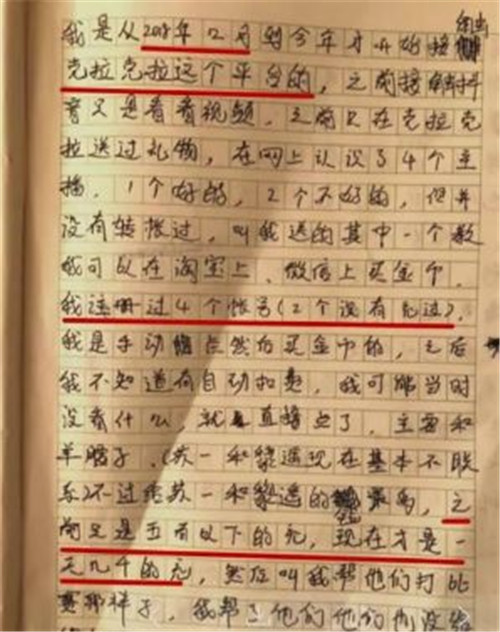 我是从2018年12月到今年才开始接触
克拉克拉这个平台的，之前接触抖
音只是看看视频，之前只在克拉克
拉送过礼物，在网上认识了4个主
播，1个好的，2个不好的，但并
没有转账过，叫我送的其中一个教
我可以在淘宝上、微信上买金币，
我注册过4个帐号(2个没有充过)，
我是手动 然后买金币的，之后
我不知道有自动扣费，我可能当时
没看什么，就 直接点了，主要和
羊腊子、(苏一和黎遥现在基本不联
系)不过给苏一和黎遥的 最多，之
前只是五百以下的充，现在才是一
天几千的充，然后叫我帮他们打比
赛那样子，我帮了他们他们也没给